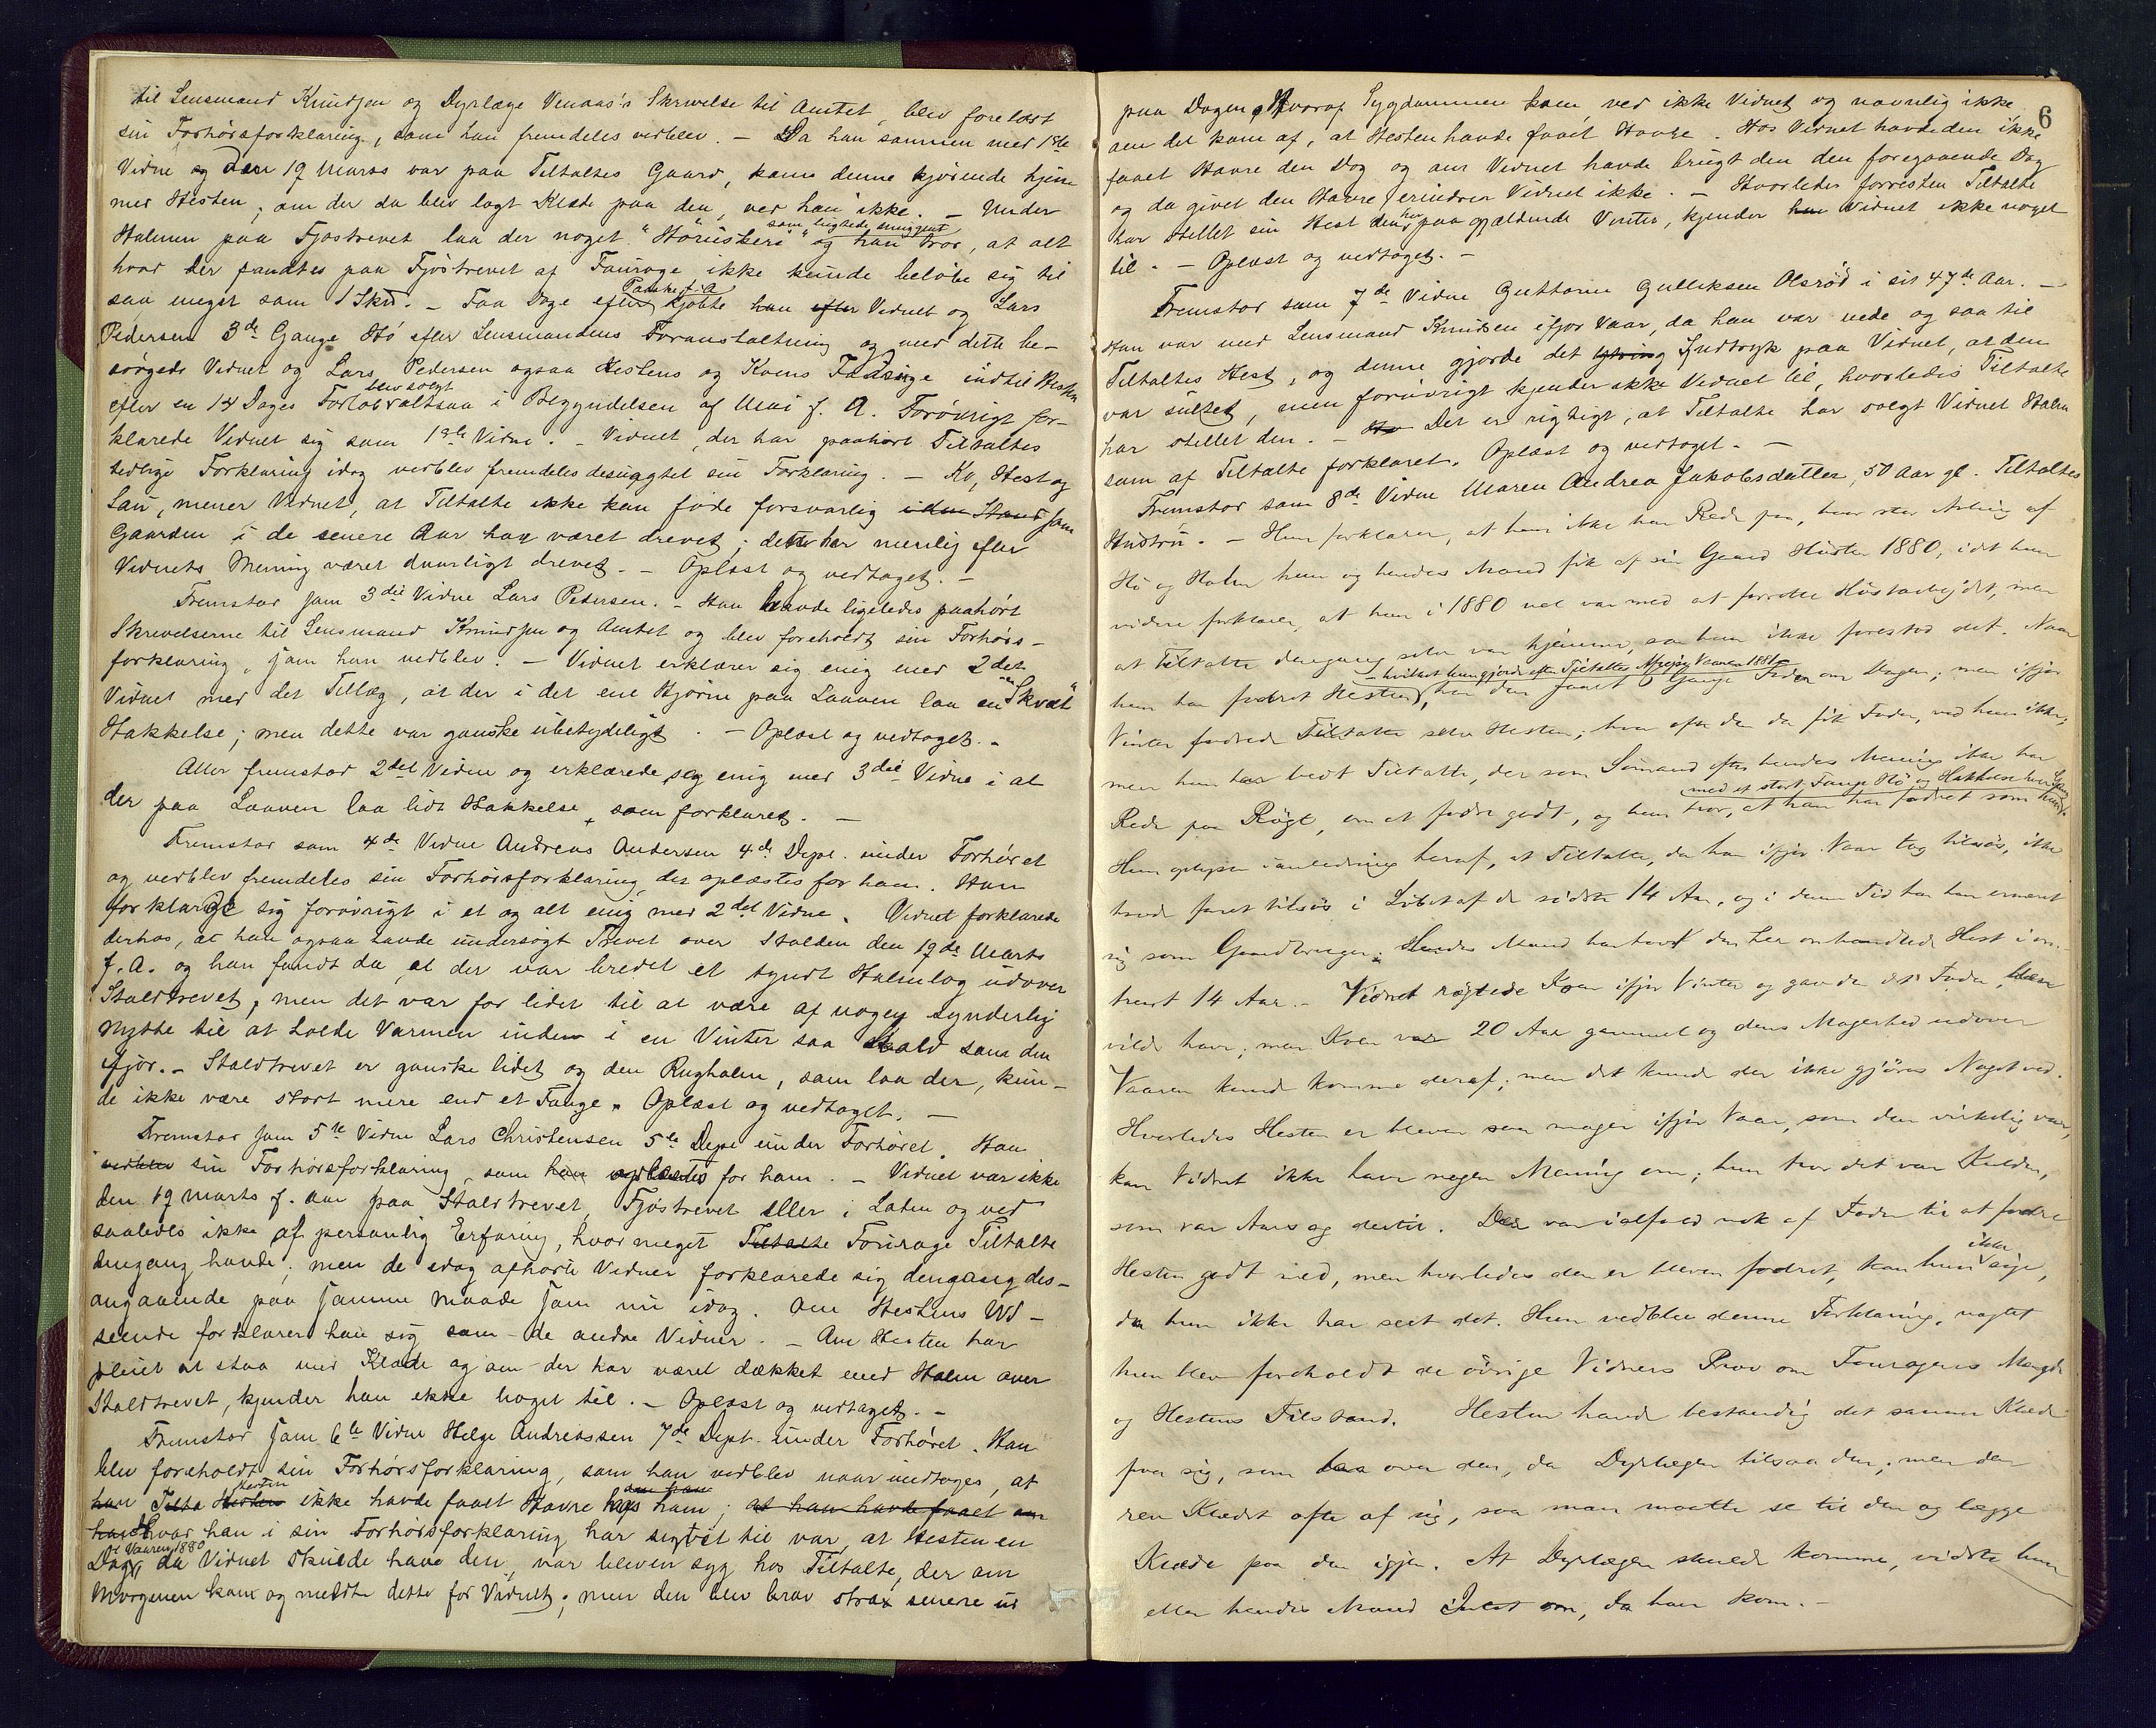 til Lensmand Knudsen og Dyrlæge Venaas's Skrivelse til Amtet, blev forelæst
sin Forhørsforklaring, som han fremdeles vedblev. — Da han sammen med 1ste
Vidne den 19 Marts var paa Tiltaltes Gaard, kom denne kjørende hjem
med Hesten; om der da blev lagt Klæde paa den, ved han ikke. — Under
som lugtede muggent
Halmen paa Fjøstrevet laa der noget "Høruskers" og han tror, at alt
hvad der fandtes paa Fjøstrevet af Fourage ikke kunde beløbe sig til
Paaske f. A
saa meget som 1 Skd. — Faa Dage efter kjøbte han efter Vidnet og Lars
Pedersen 3de Gange Hø efter Lensmandens Foranstaltning og med dette be-
sørgede Vidnet og Lars Pedersen ogsaa Hestens og Koens Fodring indtil Hesten
blev solgt
efter en 14 Dages Forløb altsaa i Begyndelsen af Mai f. A. Forøvrigt for-
klarede Vidnet sig som 1ste Vidne. — Vidnet, der har paahørt Tiltaltes
tidlige Forklaring idag vedblev fremdeles desuagtet sin Forklaring. — Ko, Hest og
Sau, mener Vidnet, at Tiltalte ikke kan føde forsvarlig i den Stand som
Gaarden i de senere Aar har været drevet; dette har nemlig efter
Vidnets Mening været daarligt drevet. — Oplæst og vedtaget. —
Fremstod som 3die Vidne Lars Pedersen. — Han havde ligeledes paahørt
Skrivelserne til Lensmand Knudsen og Amtet og blev foreholdt sin Forhørs-
forklaring, som han vedblev. — Vidnet erklærer sig enig med 2det
Vidnet med det Tillæg, at der i det ene Hjørne paa Laaven laa en "Skvæt"
Hakkelse; men dette var ganske ubetydeligt. — Oplæst og vedtaget. —
Atter fremstod 2det Vidne og erklærede sig enig med 3die Vidne i at
der paa Laaven laa lidt Hakkelse, som forklaret. —
Fremstod som 4de Vidne Andreas Andersen 4de Dept. under Forhøret
og vedblev fremdeles sin Forhørsforklaring, der oplæstes for ham. Han
forklarede sig forøvrigt i et og alt enig med 2det Vidne. Vidnet forklarede
derhos, at han ogsaa havde undersøgt Trevet over Stalden den 19de Marts
f. A. og han fandt da, at der var bredet et tyndt Halmlag udover
Staldtrevet, men det var for lidet til at være af nogen synderlig
Nytte til at holde Varmen inden i en Vinter saa kold som den
ifjor. — Staldtrevet er ganske lidet og den Rughalm, som laa der, kun-
de ikke være stort mere end et Fange. Oplæst og vedtaget. —
Fremstod som 5te Vidne Lars Christensen 5te Dept under Forhøret. Han
vedblev sin Forhørsforklaring, som han oplæstes for ham. — Vidnet var ikke
den 19 Marts f. Aar paa Staldtrevet, Fjøstrevet eller i Laden og ved
saaledes ikke af personlig Erfaring, hvor meget Tiltalte Fourage Tiltalte
dengang havde; men de idag afhørte Vidner forklarede sig dengang des-
angaaende paa samme Maade som nu idag. Om Hestens Ud-
seende forklarer han sig som de andre Vidner. — Om Hesten har
pleiet at staa med Klæde og om der har været dækket med Halm over
Staldtrevet, kjender han ikke noget til. — Oplæst og vedtaget. —
Fremstod som 6te Vidne Helge Andreassen 7de Dept. under Forhøret. Han
blev foreholdt sin Forhørsforklaring, som han vedblev naar undtages, at
Hesten
han Tilta Hesten ikke havde faaet Havre hos ham; at han havde faaet om
hvad han i sin Forhørsforklaring har sigtet til var, at Hesten en
i Vaaren 1880
Dag, da Vidnet skulde have den, var bleven syg hos Tiltalte, der om
Morgenen kom og meldte dette for Vidnet; men den blev brav strax senere ud
6
paa Dagen. Hvoraf Sygdommen kom, ved ikke Vidnet og navnlig ikke
om det kom af, at Hesten havde faaet Havre. Hos Vidnet havde den ikke
faaet Havre den Dag og om Vidnet havde brugt den den foregaaende Dag
og da givet den Havre erindrer Vidnet ikke. — Hvorledes forresten Tiltalte
har stellet sin Hest den her paagjældende Vinter, kjender han Vidnet ikke noget
til. — Oplæst og vedtaget. —
Fremstod som 7de Vidne Guttorm Gulliksen Olsrød i sit 47de Aar. —
Han var med Lensmand Knudsen ifjor Vaar, da han var nede og saa til
Tiltaltes Hest, og denne gjorde det Indtryk paa Vidnet, at den
var sultet, men forøvrigt kjender ikke Vidnet til, hvorledes Tiltalte
har stellet den. — Det er rigtigt, at Tiltalte har solgt Vidnet Halm
som af Tiltalte forklaret. Oplæst og vedtaget. —
Fremstod som 8de Vidne Maren Andrea Jakobsdatter, 50 Aar gl. Tiltaltes
Hustru. — Hun forklarer, at hun ikke har Rede paa, hvor stor Avling af
Hø og Halm hun og hendes Mand fik af sin Gaard Høsten 1880, idet hun
videre forklarer, at hun i 1880 vel var med at forrette Høstarbejdet, men
at Tiltalte dengang selv var hjemme, saa hun ikke forestod det. Naar
hvilket hun gjorde efter Tiltaltes Afrejse Vaaren 1881
hun har fodret Hesten, har den faaet 6 Gange Foder om Dagen; men ifjor
Vinter fodrede Tiltalte selv Hesten; hvor ofte den da fik Foder, ved hun ikke,
men hun har bedt Tiltalte, der som Sømand efter hendes Mening ikke har
med et stort Fange Hø og Hakkelse hver Gang
Rede paa Røgt, om at fodre godt, og hun tror, at han har fodret som hun.
Hun oplyser i anledning heraf, at Tiltalte, da han ifjor Vaar tog tilsøs, ikke
havde faret tilsøs i Løbet af de sidste 14 Aar, og i denne Tid har han ernæret
sig som Gaardbruger. Hendes Mand har havt den her omhandlede Hest i om-
trent 14 Aar. — Vidnet røgtede Koen ifjor Vinter og gav den det Foder, den
vilde have; men Koen var 20 Aar gammel og dens Magerhed udover
Vaaren kunde komme deraf; men det kunde der ikke gjøres Noget ved.
Hvorledes Hesten er bleven saa mager ifjor Vaar, som den virkelig var,
kan Vidnet ikke have nogen Mening om; hun tror det var Kulden,
som var Aarsag dertil. Der var ialfald nok af Foder til at fodre
ikke
Hesten godt med, men hvorledes den er bleven fodret, kan hun sige,
da hun ikke har seet det. Hun vedblev denne Forklaring, uagtet
hun blev foreholdt de øvrige Vidners Prov om Fouragens Mængde
og Hestens Tilstand. Hesten havde bestandig det samme Klæde
paa sig, som laa over den, da Dyrlægen tilsaa den; men den
rev Klædet ofte af sig, saa man maatte se til den og lægge
Klæde paa den igjen. At Dyrlægen skulde komme, vidste hun
eller hendes Mand Intet om, da han kom. —